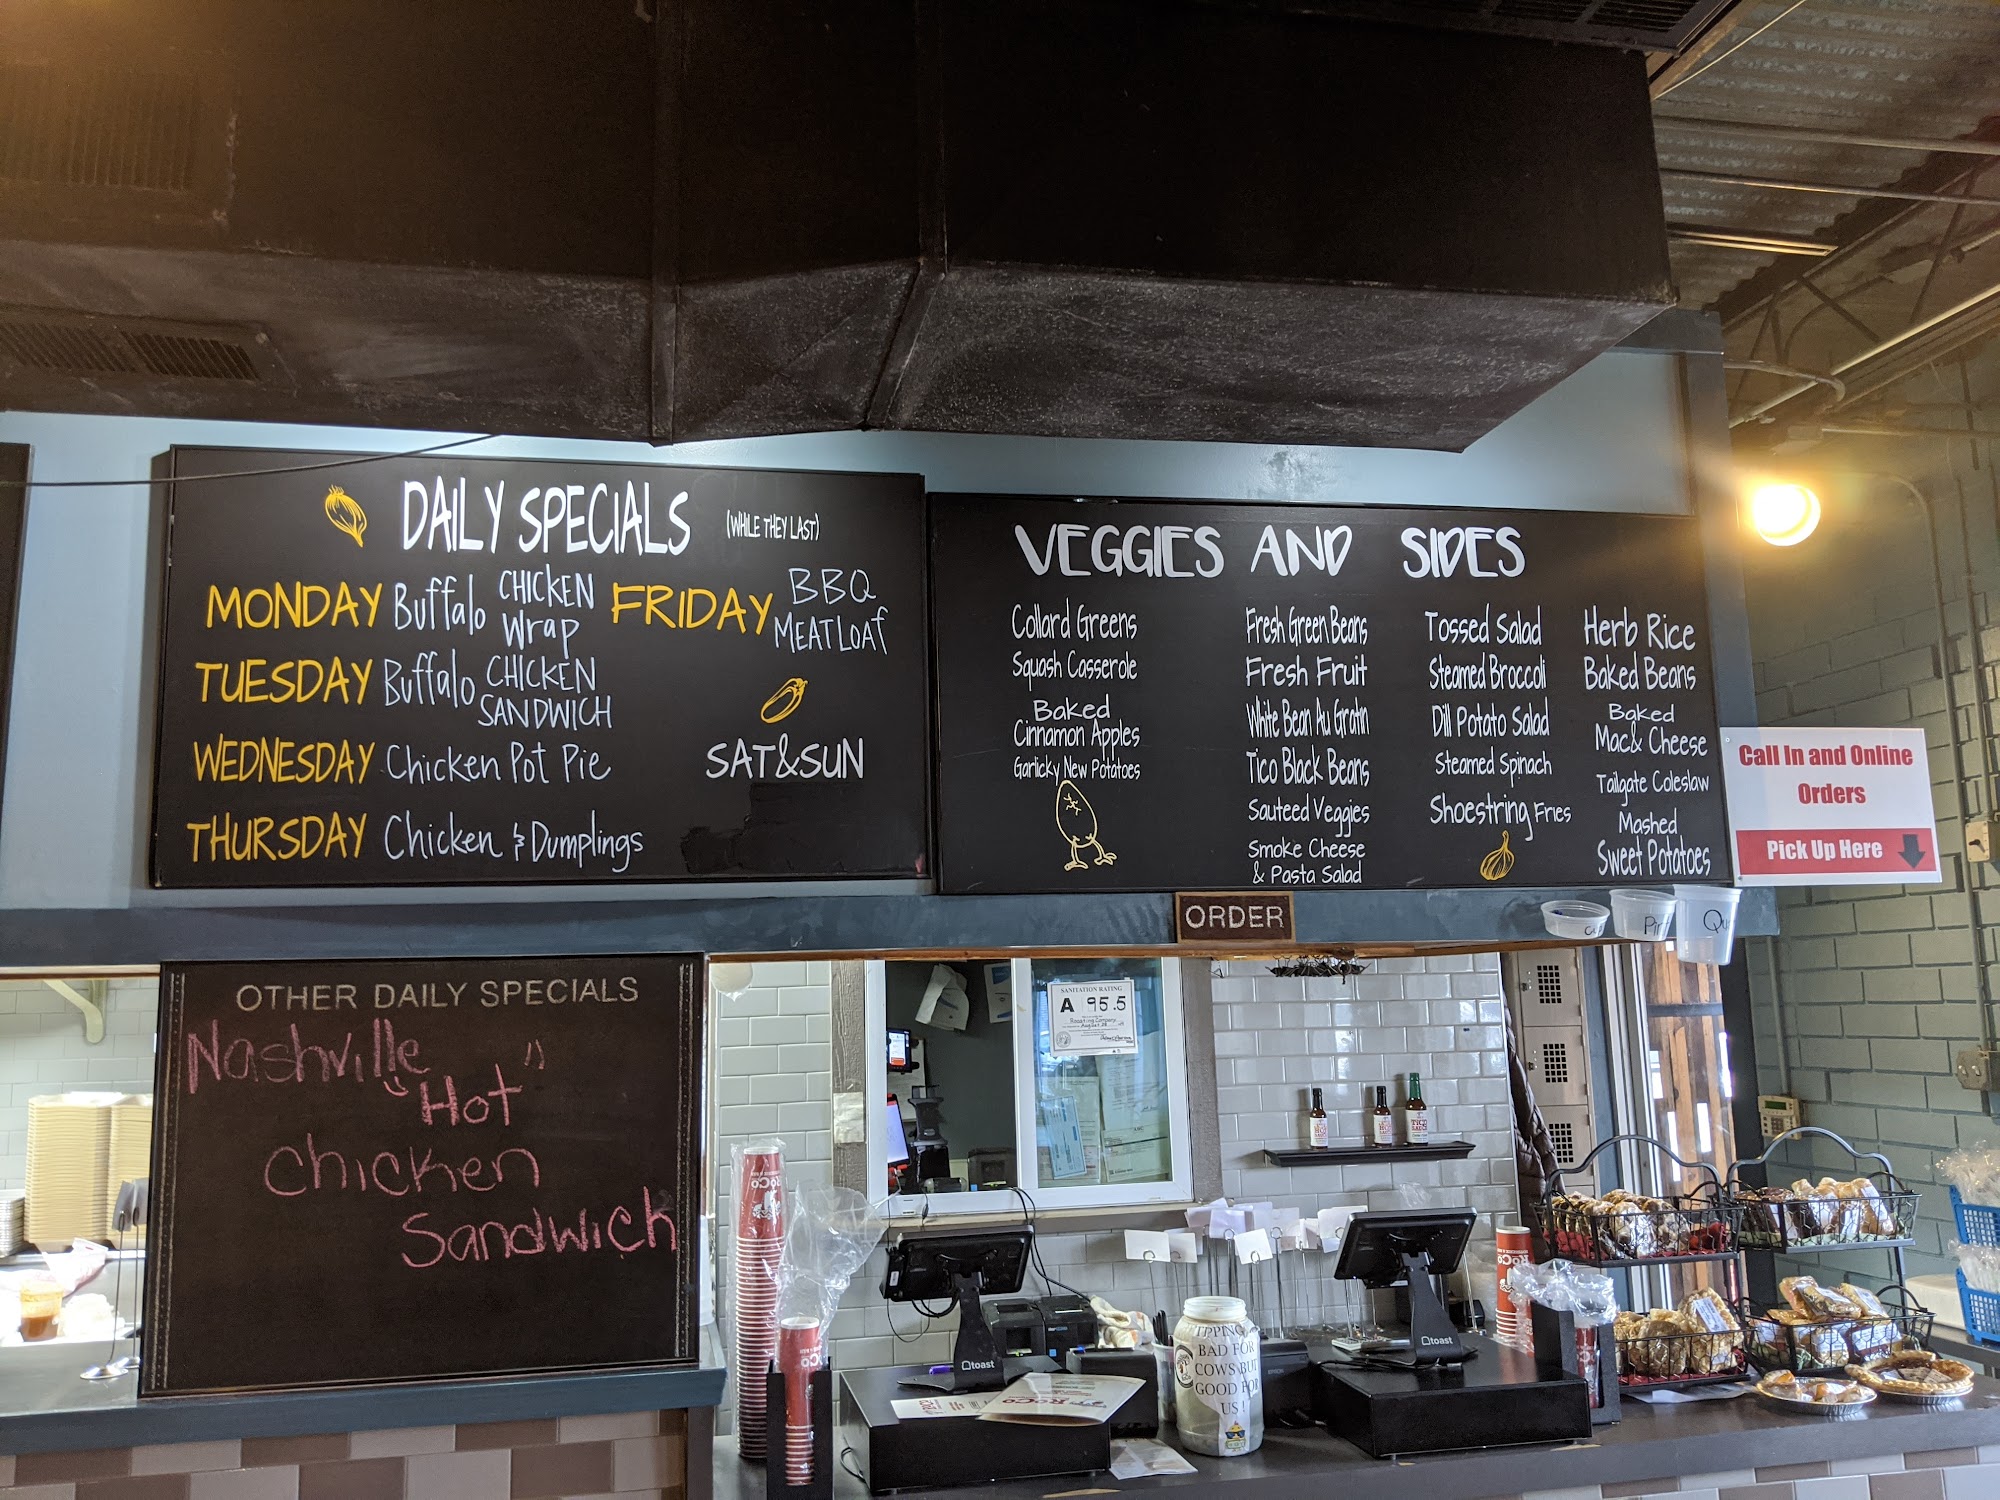 DAILY SPECIALS (WHILE THEY LAST)
MONDAY Buffalo CHICKEN Wrap
TUESDAY Buffalo CHICKEN SANDWICH
WEDNESDAY Chicken Pot Pie
THURSDAY Chicken & Dumplings
FRIDAY BBQ MEATLOAf
SAT&SUN
VEGGIES AND SIDES
Collard Greens
Squash Casserole
Baked
Cinnamon Apples
Garlicky New Potatoes
Fresh Green Beans
Fresh Fruit
White Bean Au Gratin
Tico Black Beans
Sauteed Veggies
Smoke Cheese
& Pasta Salad
Tossed Salad
Steamed Broccoli
Dill Potato Salad
Steamed Spinach
Shoestring Fries
Herb Rice
Baked Beans
Baked
Mac & Cheese
Tailgate Coleslaw
Mashed
Sweet Potatoes
Call In and Online
Orders
Pick Up Here
ORDER
OTHER DAILY SPECIALS
Nashville
"Hot"
Chicken
Sandwich
SANITATION RATING
A 95.5
Roasting Company
August 28
RoCo
toast
RoCo
TIPPING
BAD FOR
COWS BUT
GOOD FOR
US!
EPSON
toast
RoCo